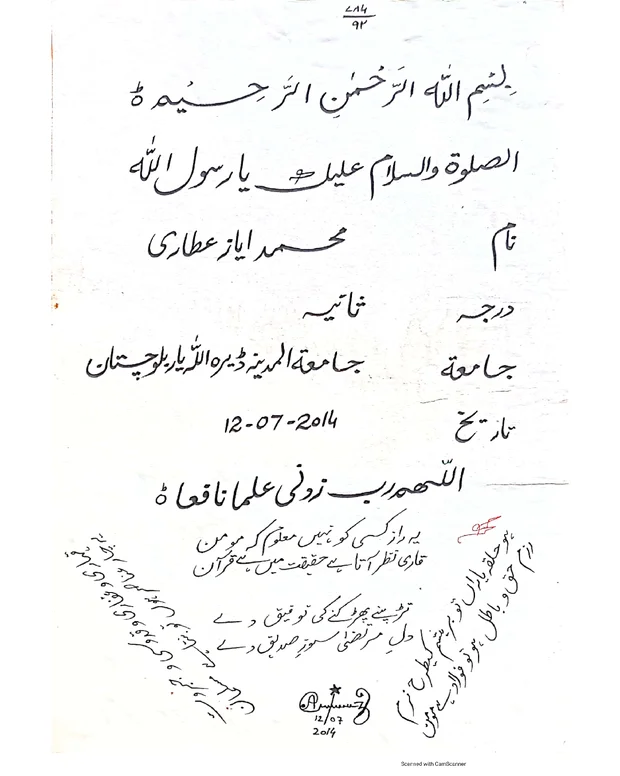 ۷۸۶
۹۲
بِسْمِ اللہِ الرَّحْمٰنِ الرَّحِیْمِ ہ
الصلوۃ والسلام علیک یارسول اللہ
نام محمد ایاز عطاری
درجہ ثانیہ
جامعۃ جامعۃ المدینہ ڈیرہ اللہ یار بلوچستان
تاریخ 12-07-2014
اللّٰھم رب زدنی علما نافعاہ
یہ راز کسی کو نہیں معلوم کہ مومن
قاری نظر آتا ہے حقیقت میں ہے قرآن
تڑپنے پھڑکنے کی توفیق دے
دلِ مرتضیٰ سوزِ صدیق دے
ہو حلقہ یاراں تو بریشم کیطرح نرم
رزم حق و باطل ہو تو فولاد ہے مومن
قہاری و غفاری و قدوسی و جبروت
یہ چار عناصر ہوں تو بنتا ہے مسلمان
12/07
2014
Scanned with CamScanner